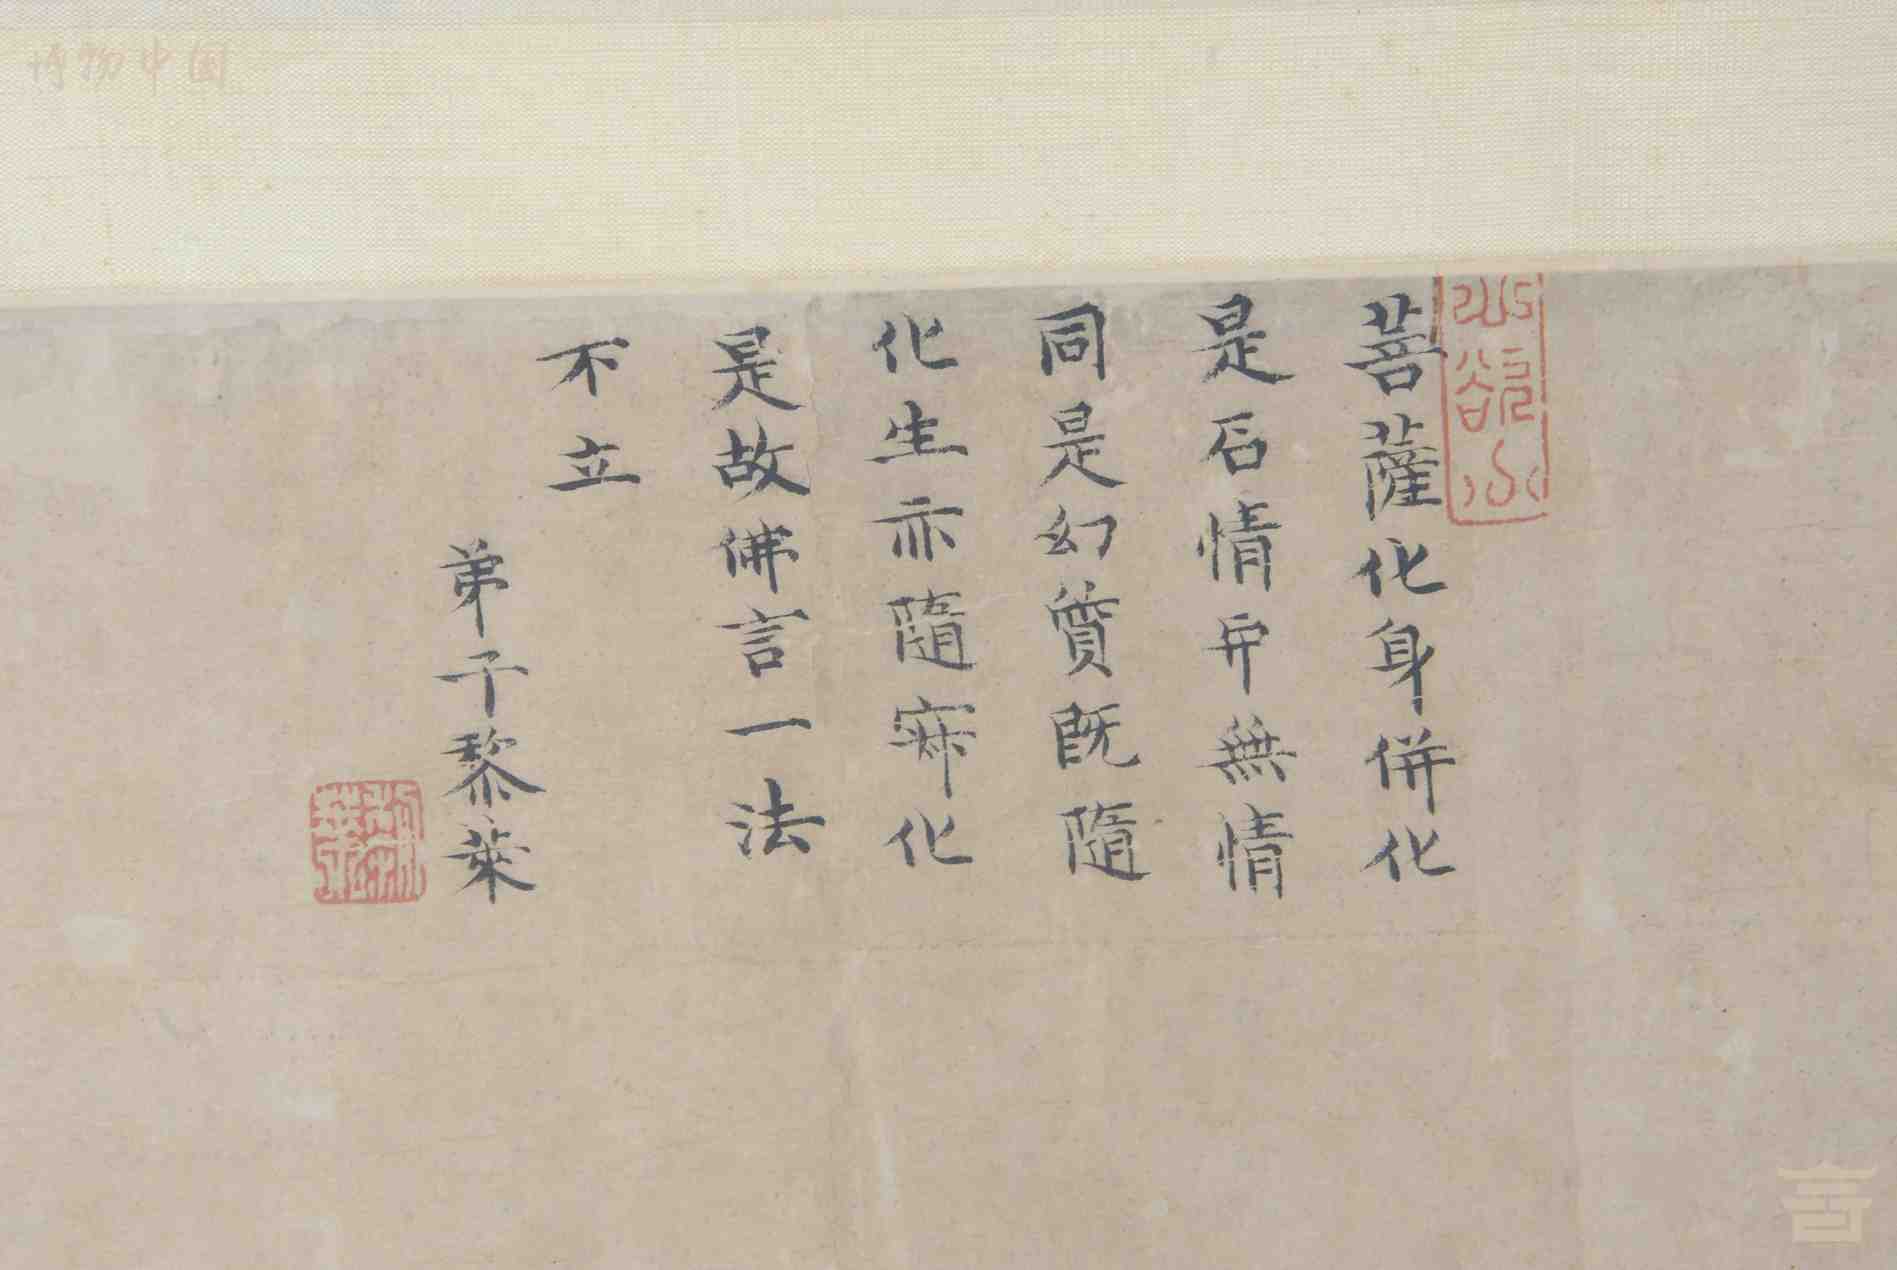 菩薩化身併化
是后情毋無情
同是幻質既隨
化生亦隨寂化
是故佛言一法
不立
弟子黎萊
博物中国